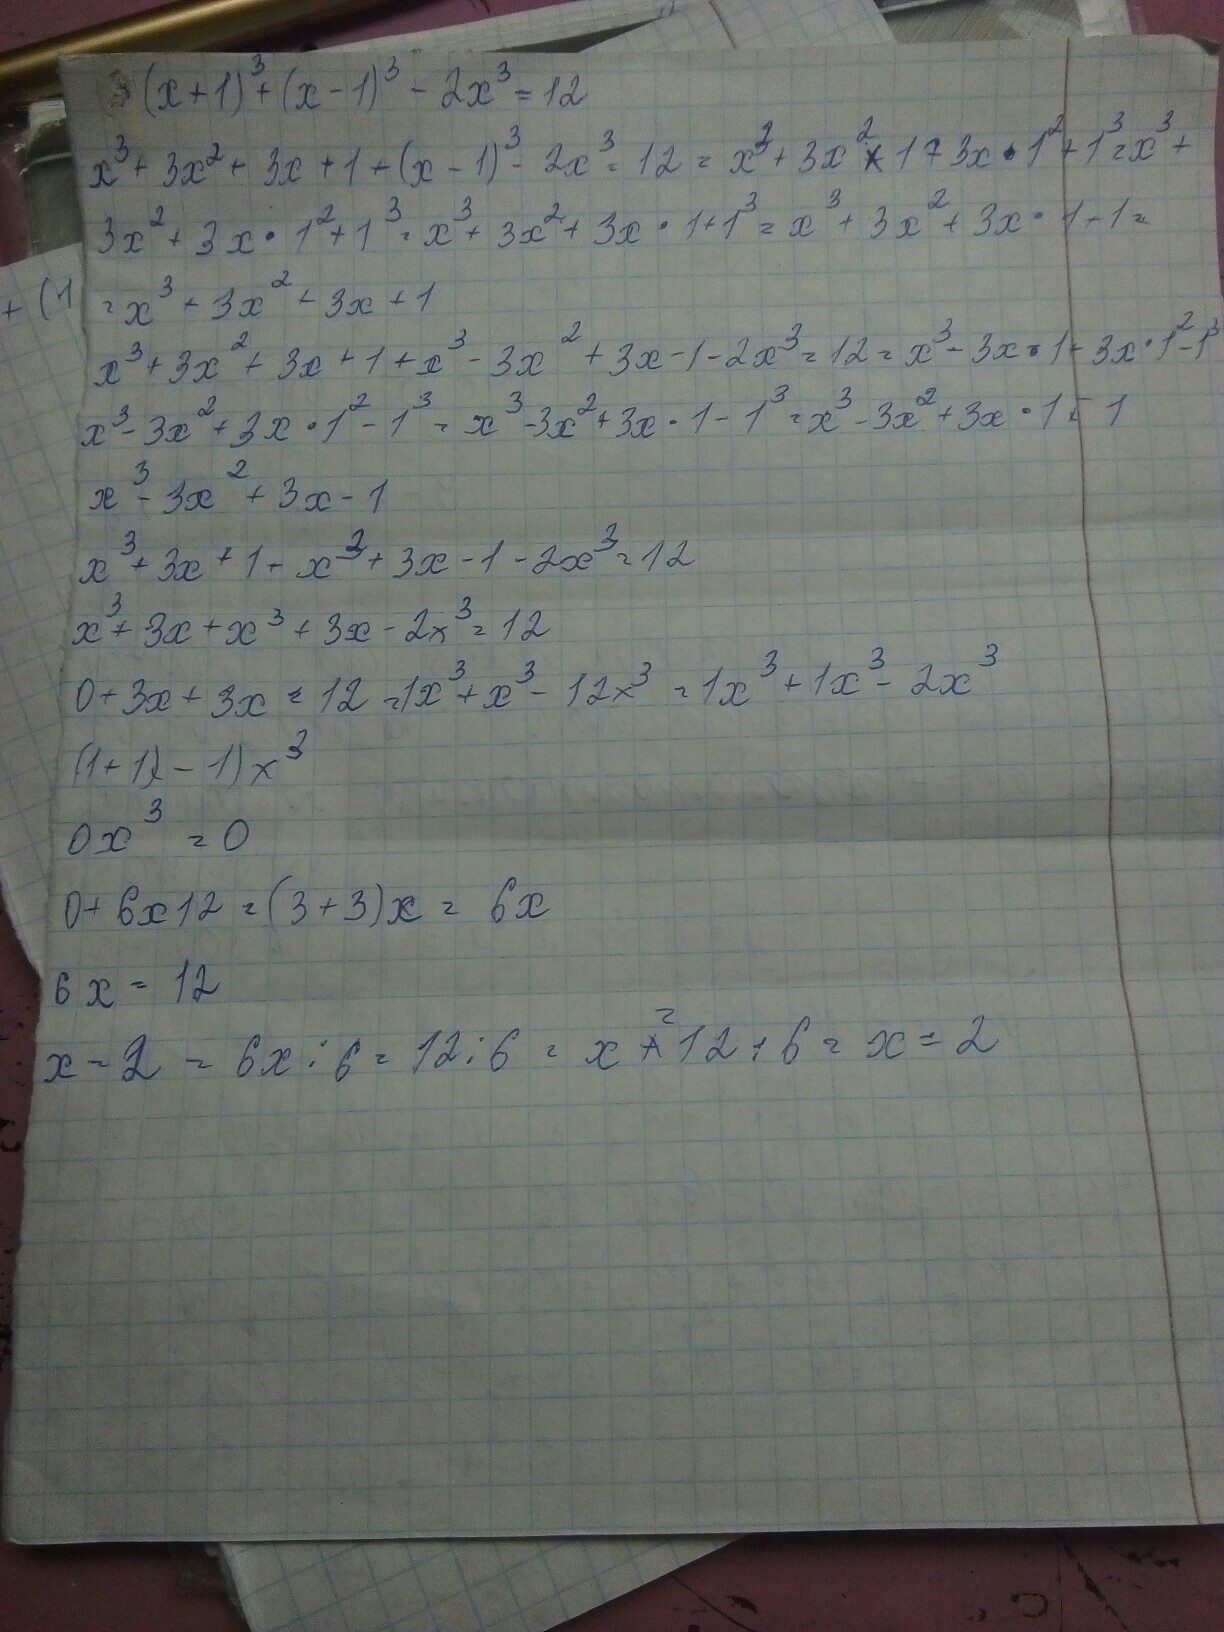 (x+1)³+(x-1)³-2x³=12
x³+3x²+3x+1+(x-1)³-2x³=12=x³+3x²×1+3x·1²+1³=x³+
3x²+3x·1²+1³=x³+3x²+3x·1+1³=x³+3x²+3x·1-1=
+(1
=x³+3x²+3x+1
x³+3x²+3x+1+x³-3x²+3x-1-2x³=12=x³-3x·1+3x·1²-1³
x³-3x²+3x·1²-1³=x³-3x²+3x·1-1³=x³-3x²+3x·1-1
x³-3x²+3x-1
x³+3x+1+x³+3x-1-2x³=12
x³+3x+x³+3x-2x³=12
0+3x+3x=12=1x³+x³-12x³=1x³+1x³-2x³
(1+1)-1)x³
0x³=0
0+6x12=(3+3)x=6x
6x=12
x=2=6x:6=12:6=x=12:6=x=2